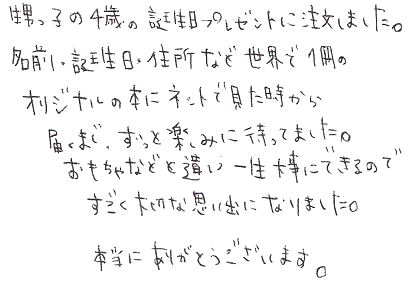 甥っ子の4歳の誕生日プレゼントに注文しました。
名前、誕生日、住所など世界で1冊の
オリジナルの本にネットで見た時から
届くまで、ずっと楽しみに待ってました。
おもちゃなどと違い一生大事にできるので
すごく大切な思い出になりました。
本当にありがとうございます。